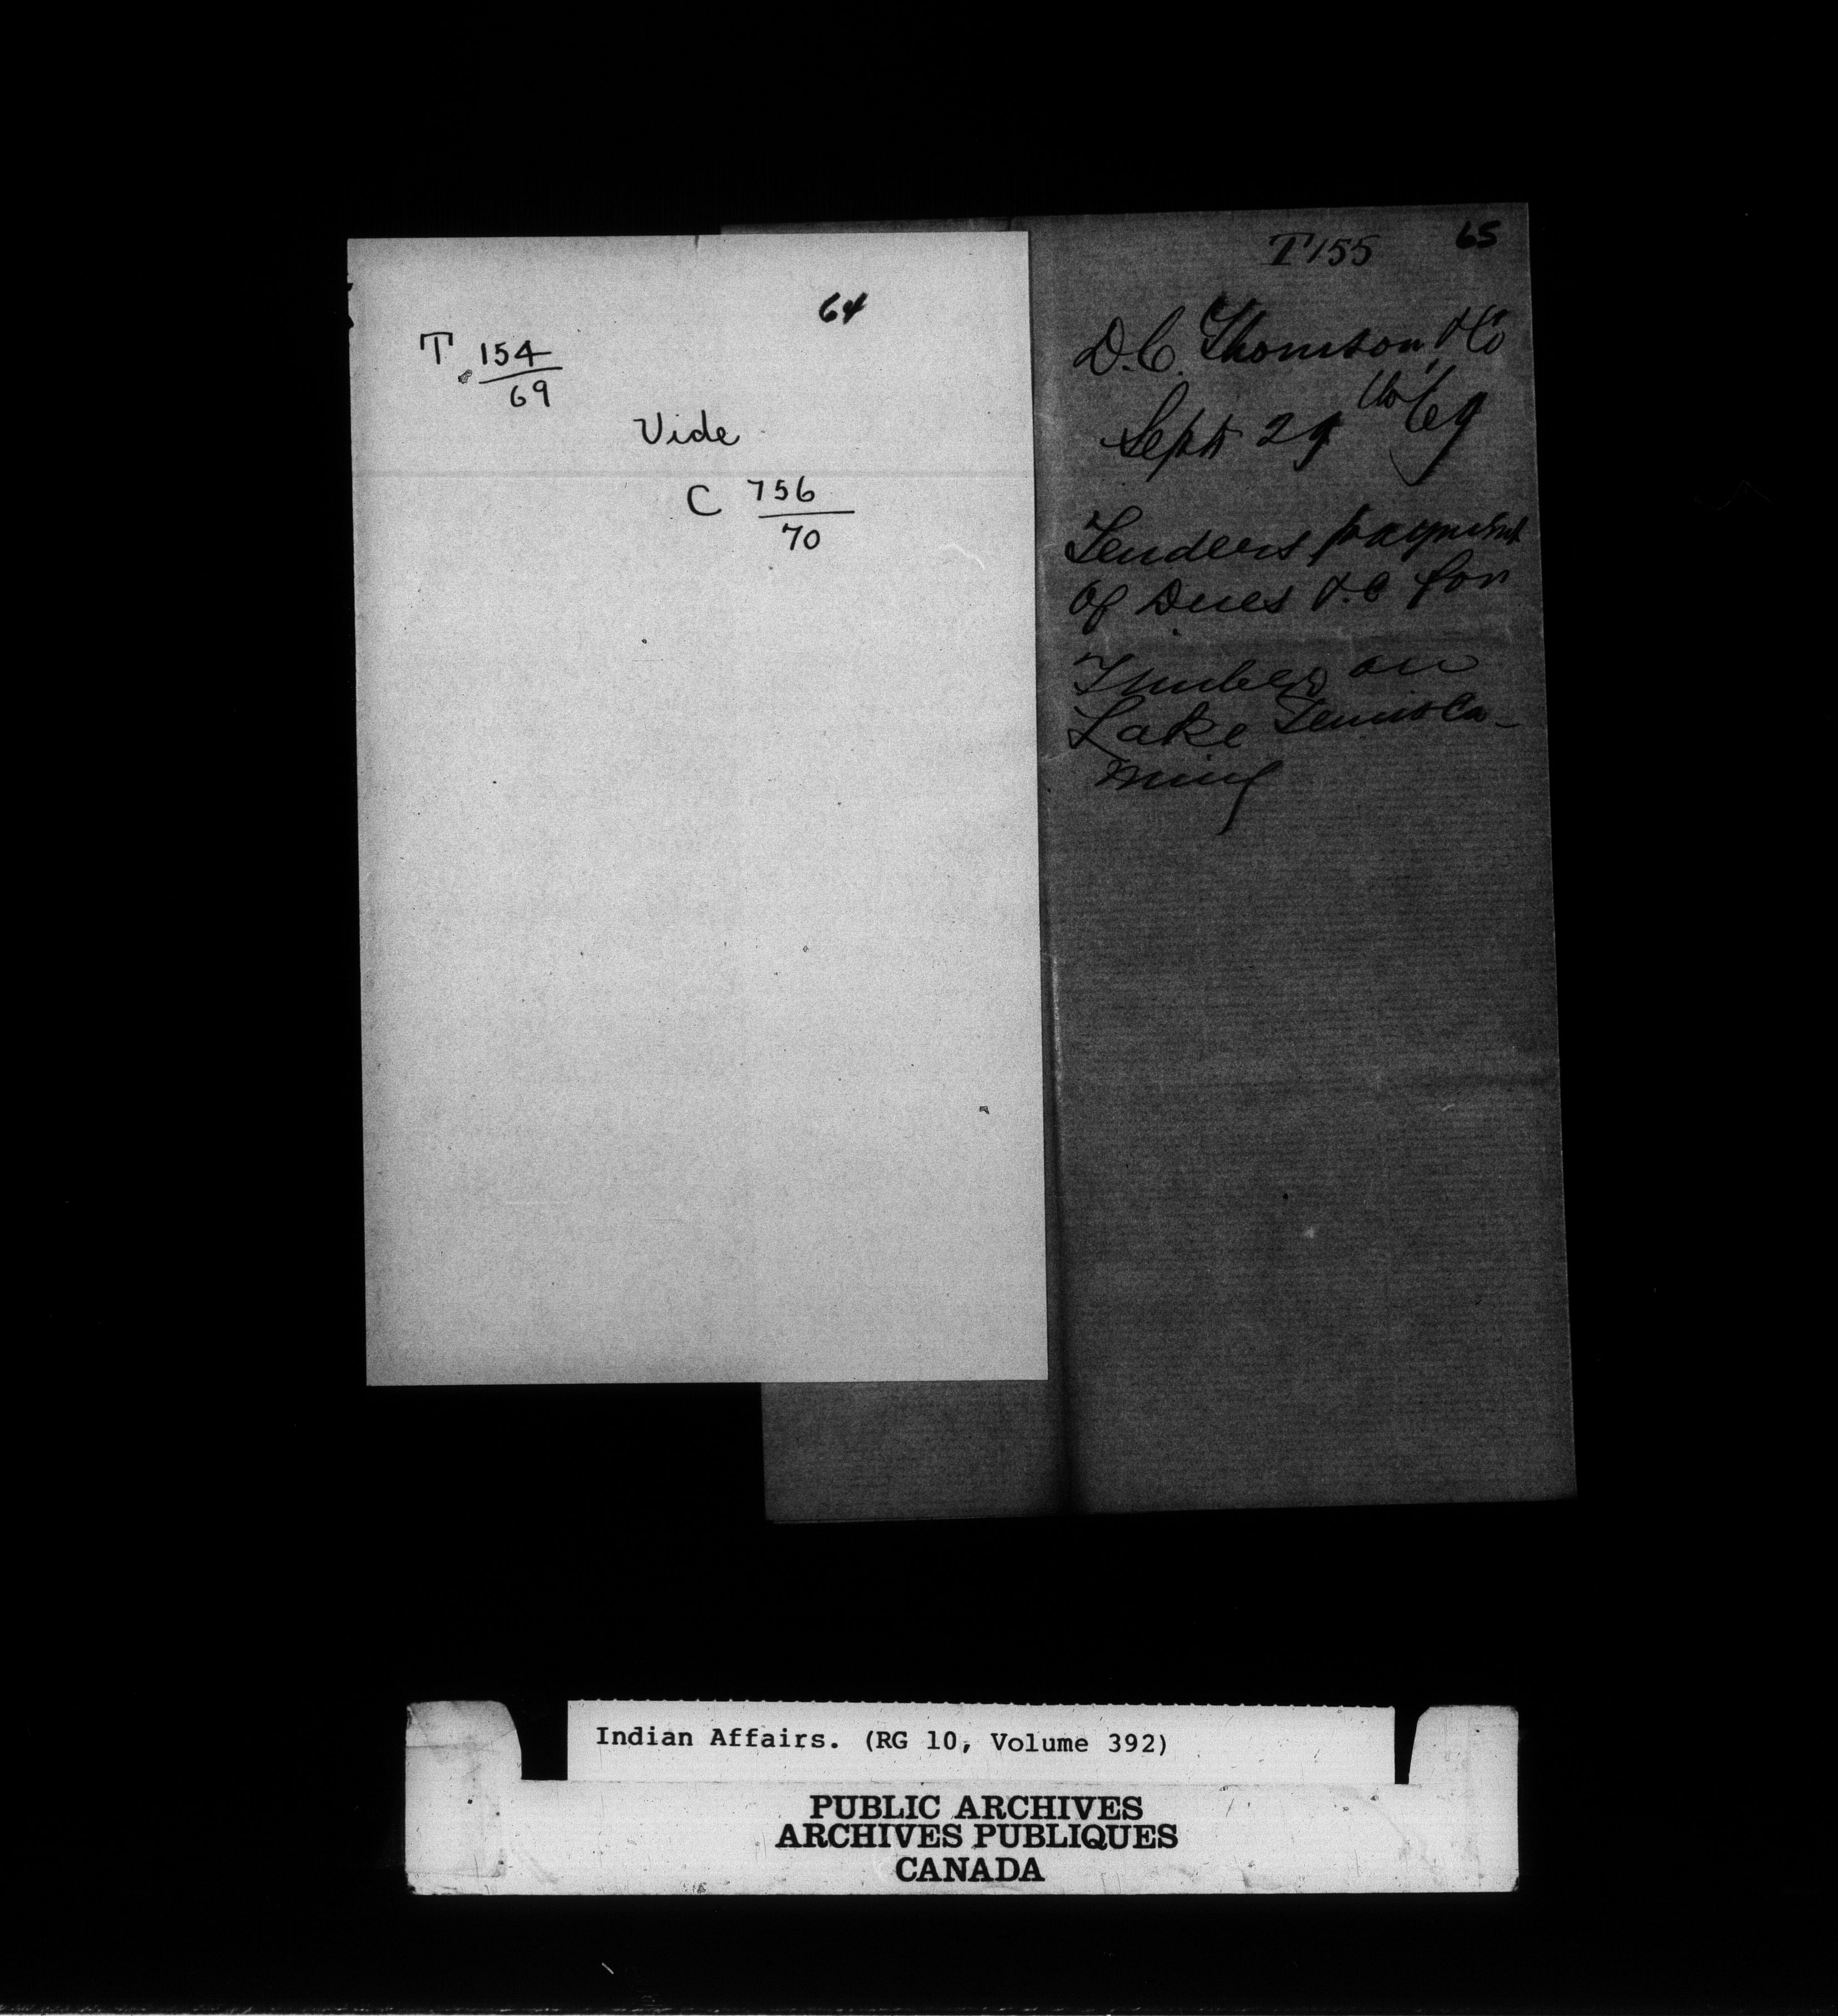 64
T 154
69
Vide
C 756
70
T 155
65
D.C. Thomson & Co
Sept 29 /69
Tenders payment
of Dues &.c for
Timber on
Lake Temisca-
ming
Indian Affairs. (RG 10, Volume 392)
PUBLIC ARCHIVES
ARCHIVES PUBLIQUES
CANADA